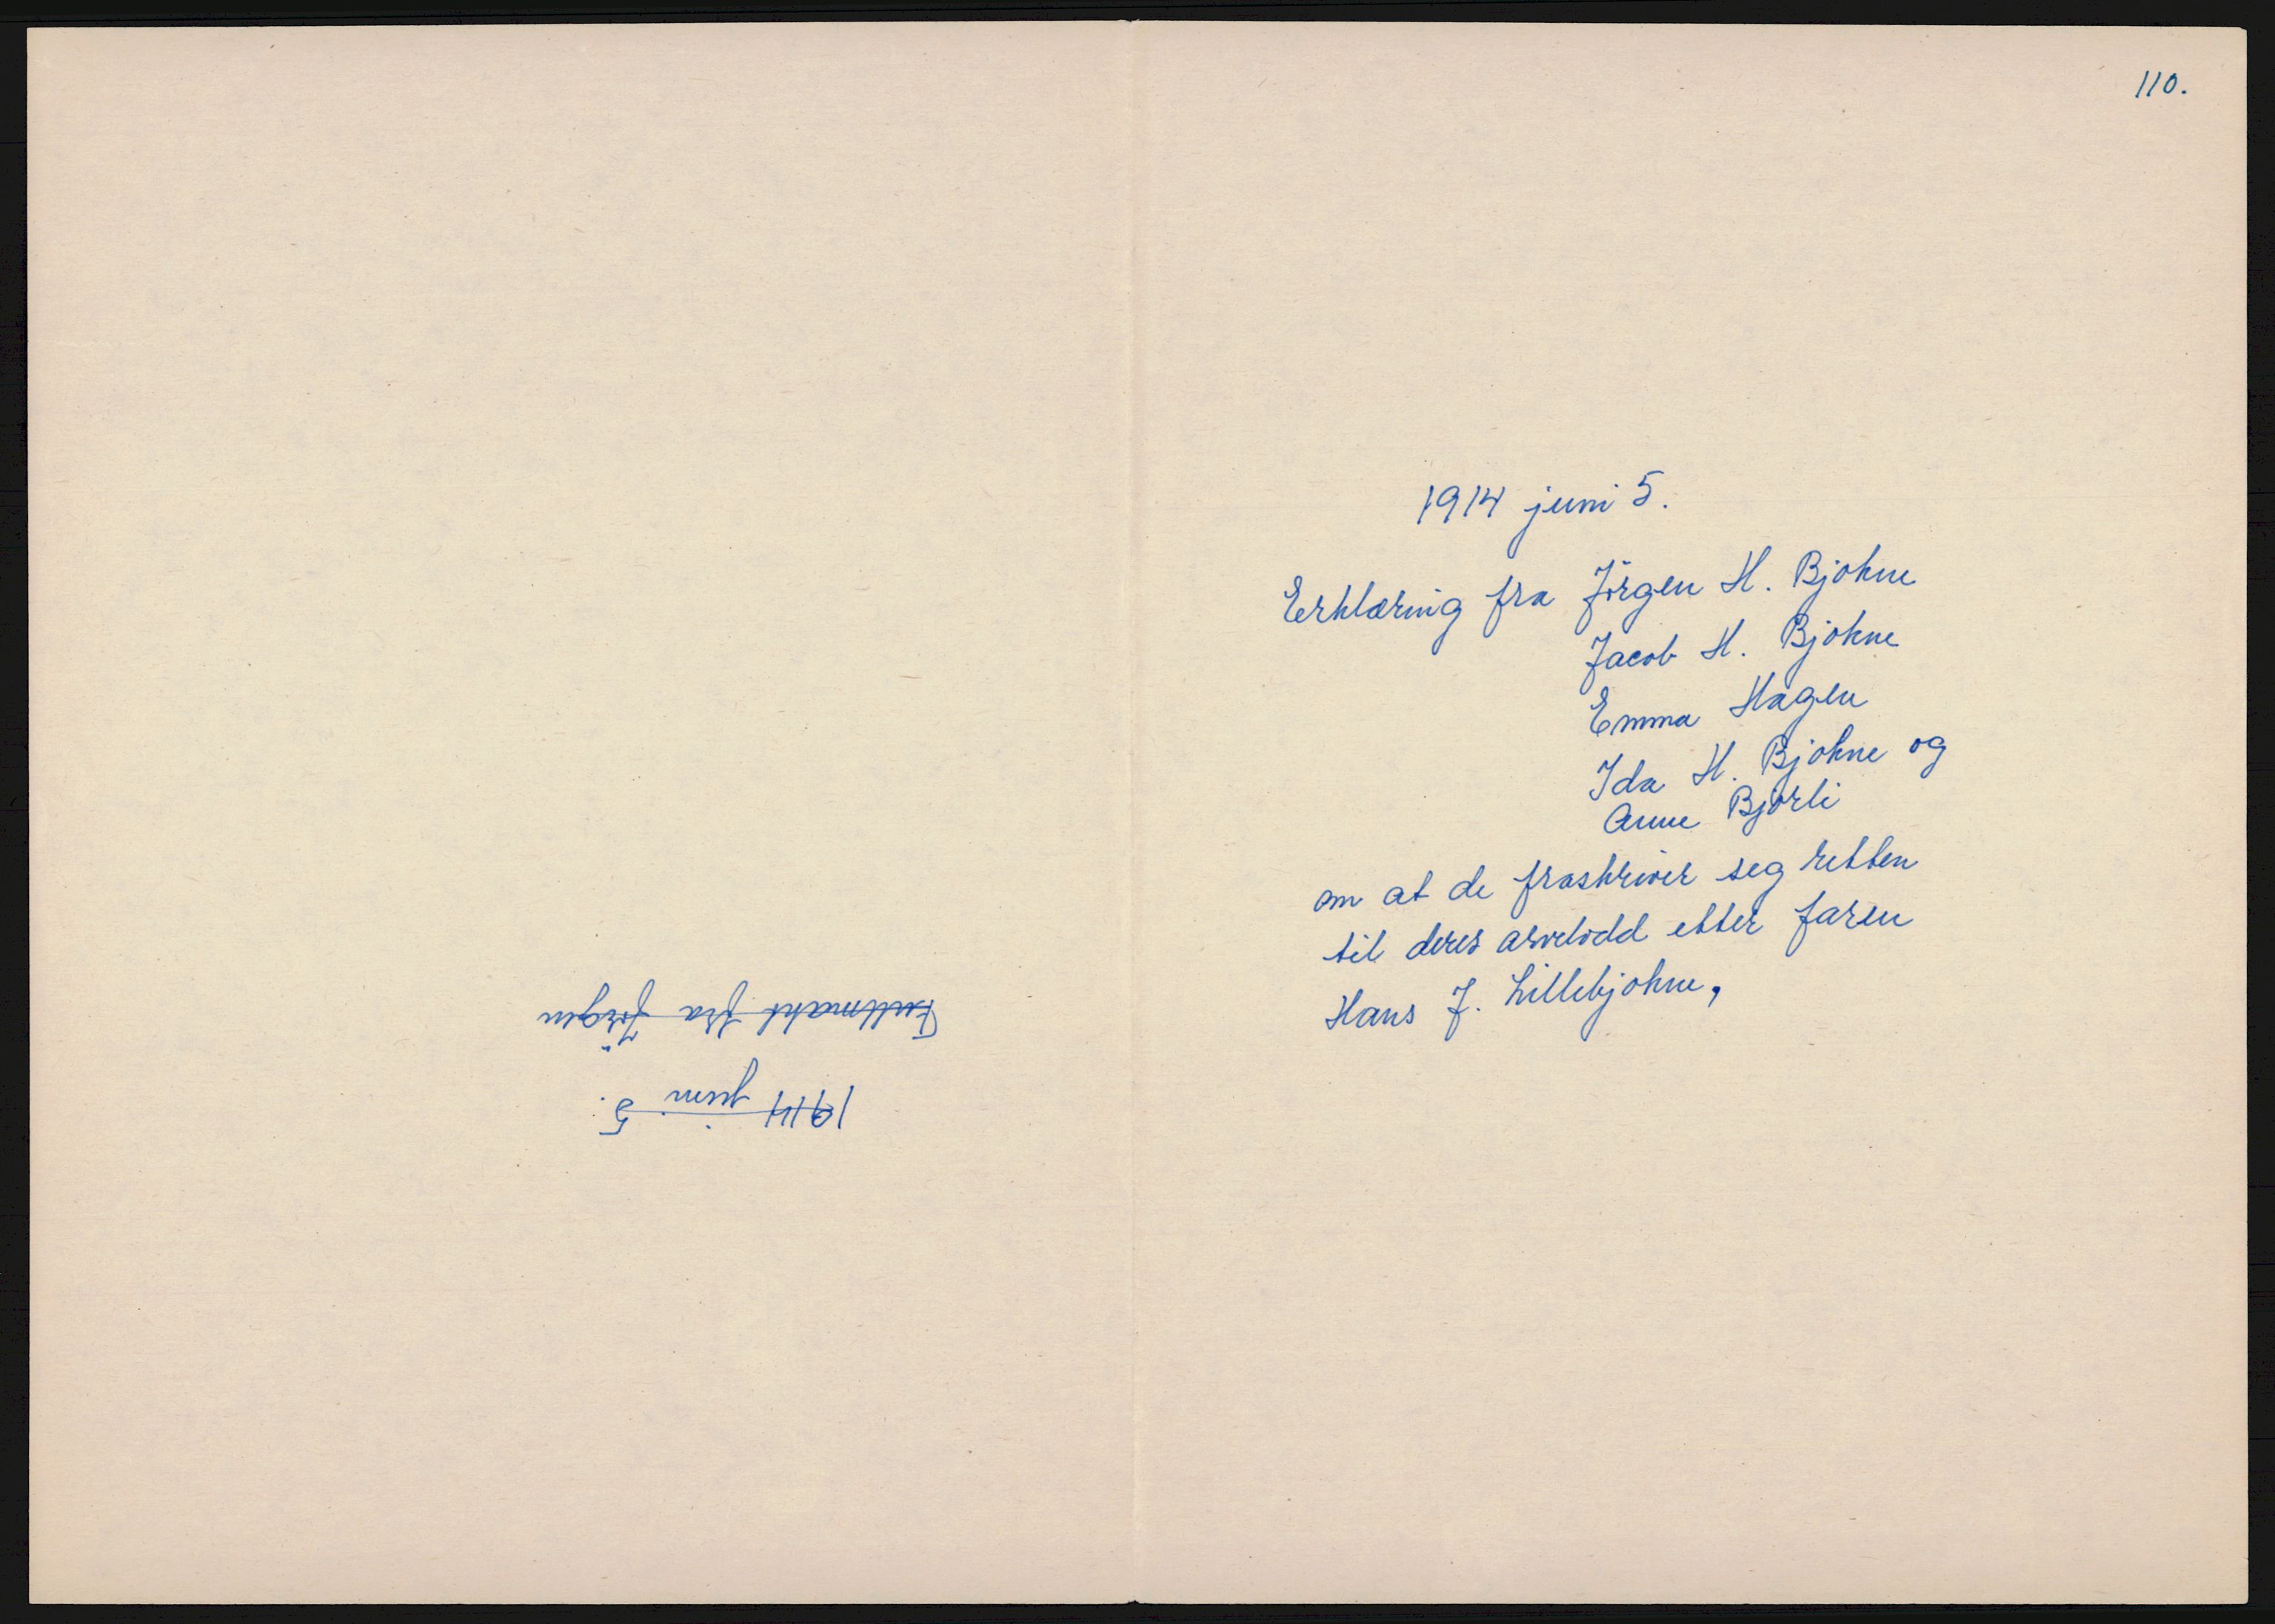 1914 juni 5.
Fullmakt fra Jörgen
110.
1914 juni 5.
Erklæring fra Jörgen H. Bjøkne
Jacob H. Bjøkne
Emma Hagen
Ida H. Bjøkne og
Anne Bjørli
om at de fraskriver seg retten
til deres arvelodd etter faren
Hans J. Lillebjøkne,